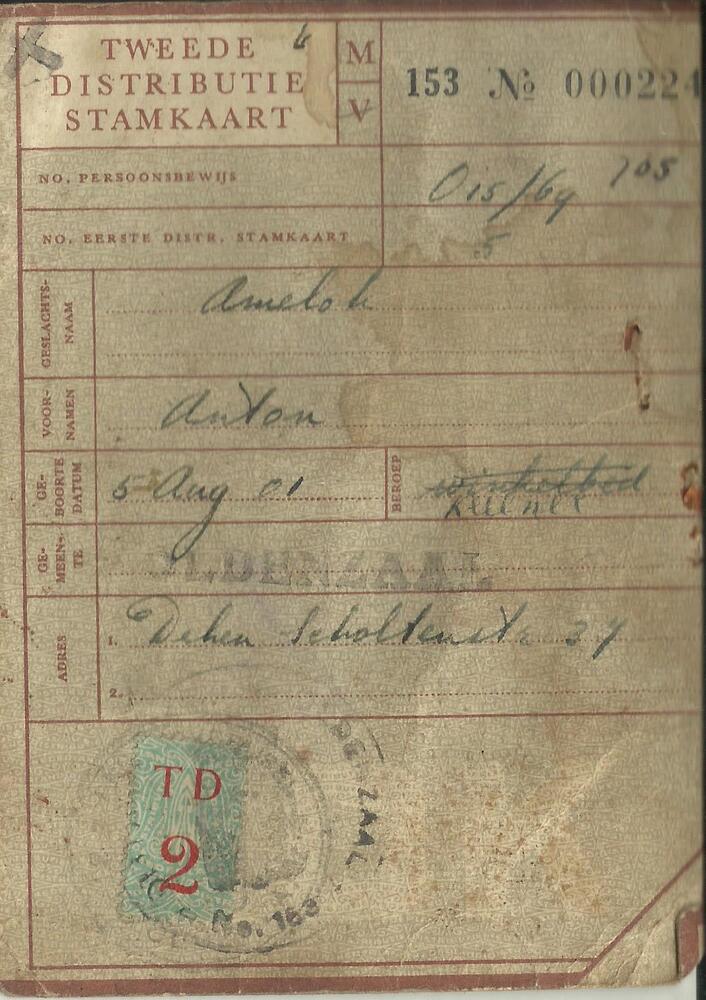 TWEEDE
DISTRIBUTIE
STAMKAART
M
V
153 № 000224
NO. PERSOONSBEWIJS
O 15/69 705
NO. EERSTE DISTR. STAMKAART
5
GESLACHTS-
NAAM
Ameloh
VOOR-
NAMEN
Anton
GE-
BOORTE
DATUM
5 Aug 01
BEROEP
GE-
MEEN-
TE
OLDENZAAL
ADRES
1. Deken Scholtenstr 34
2.
TD
2
No. 153